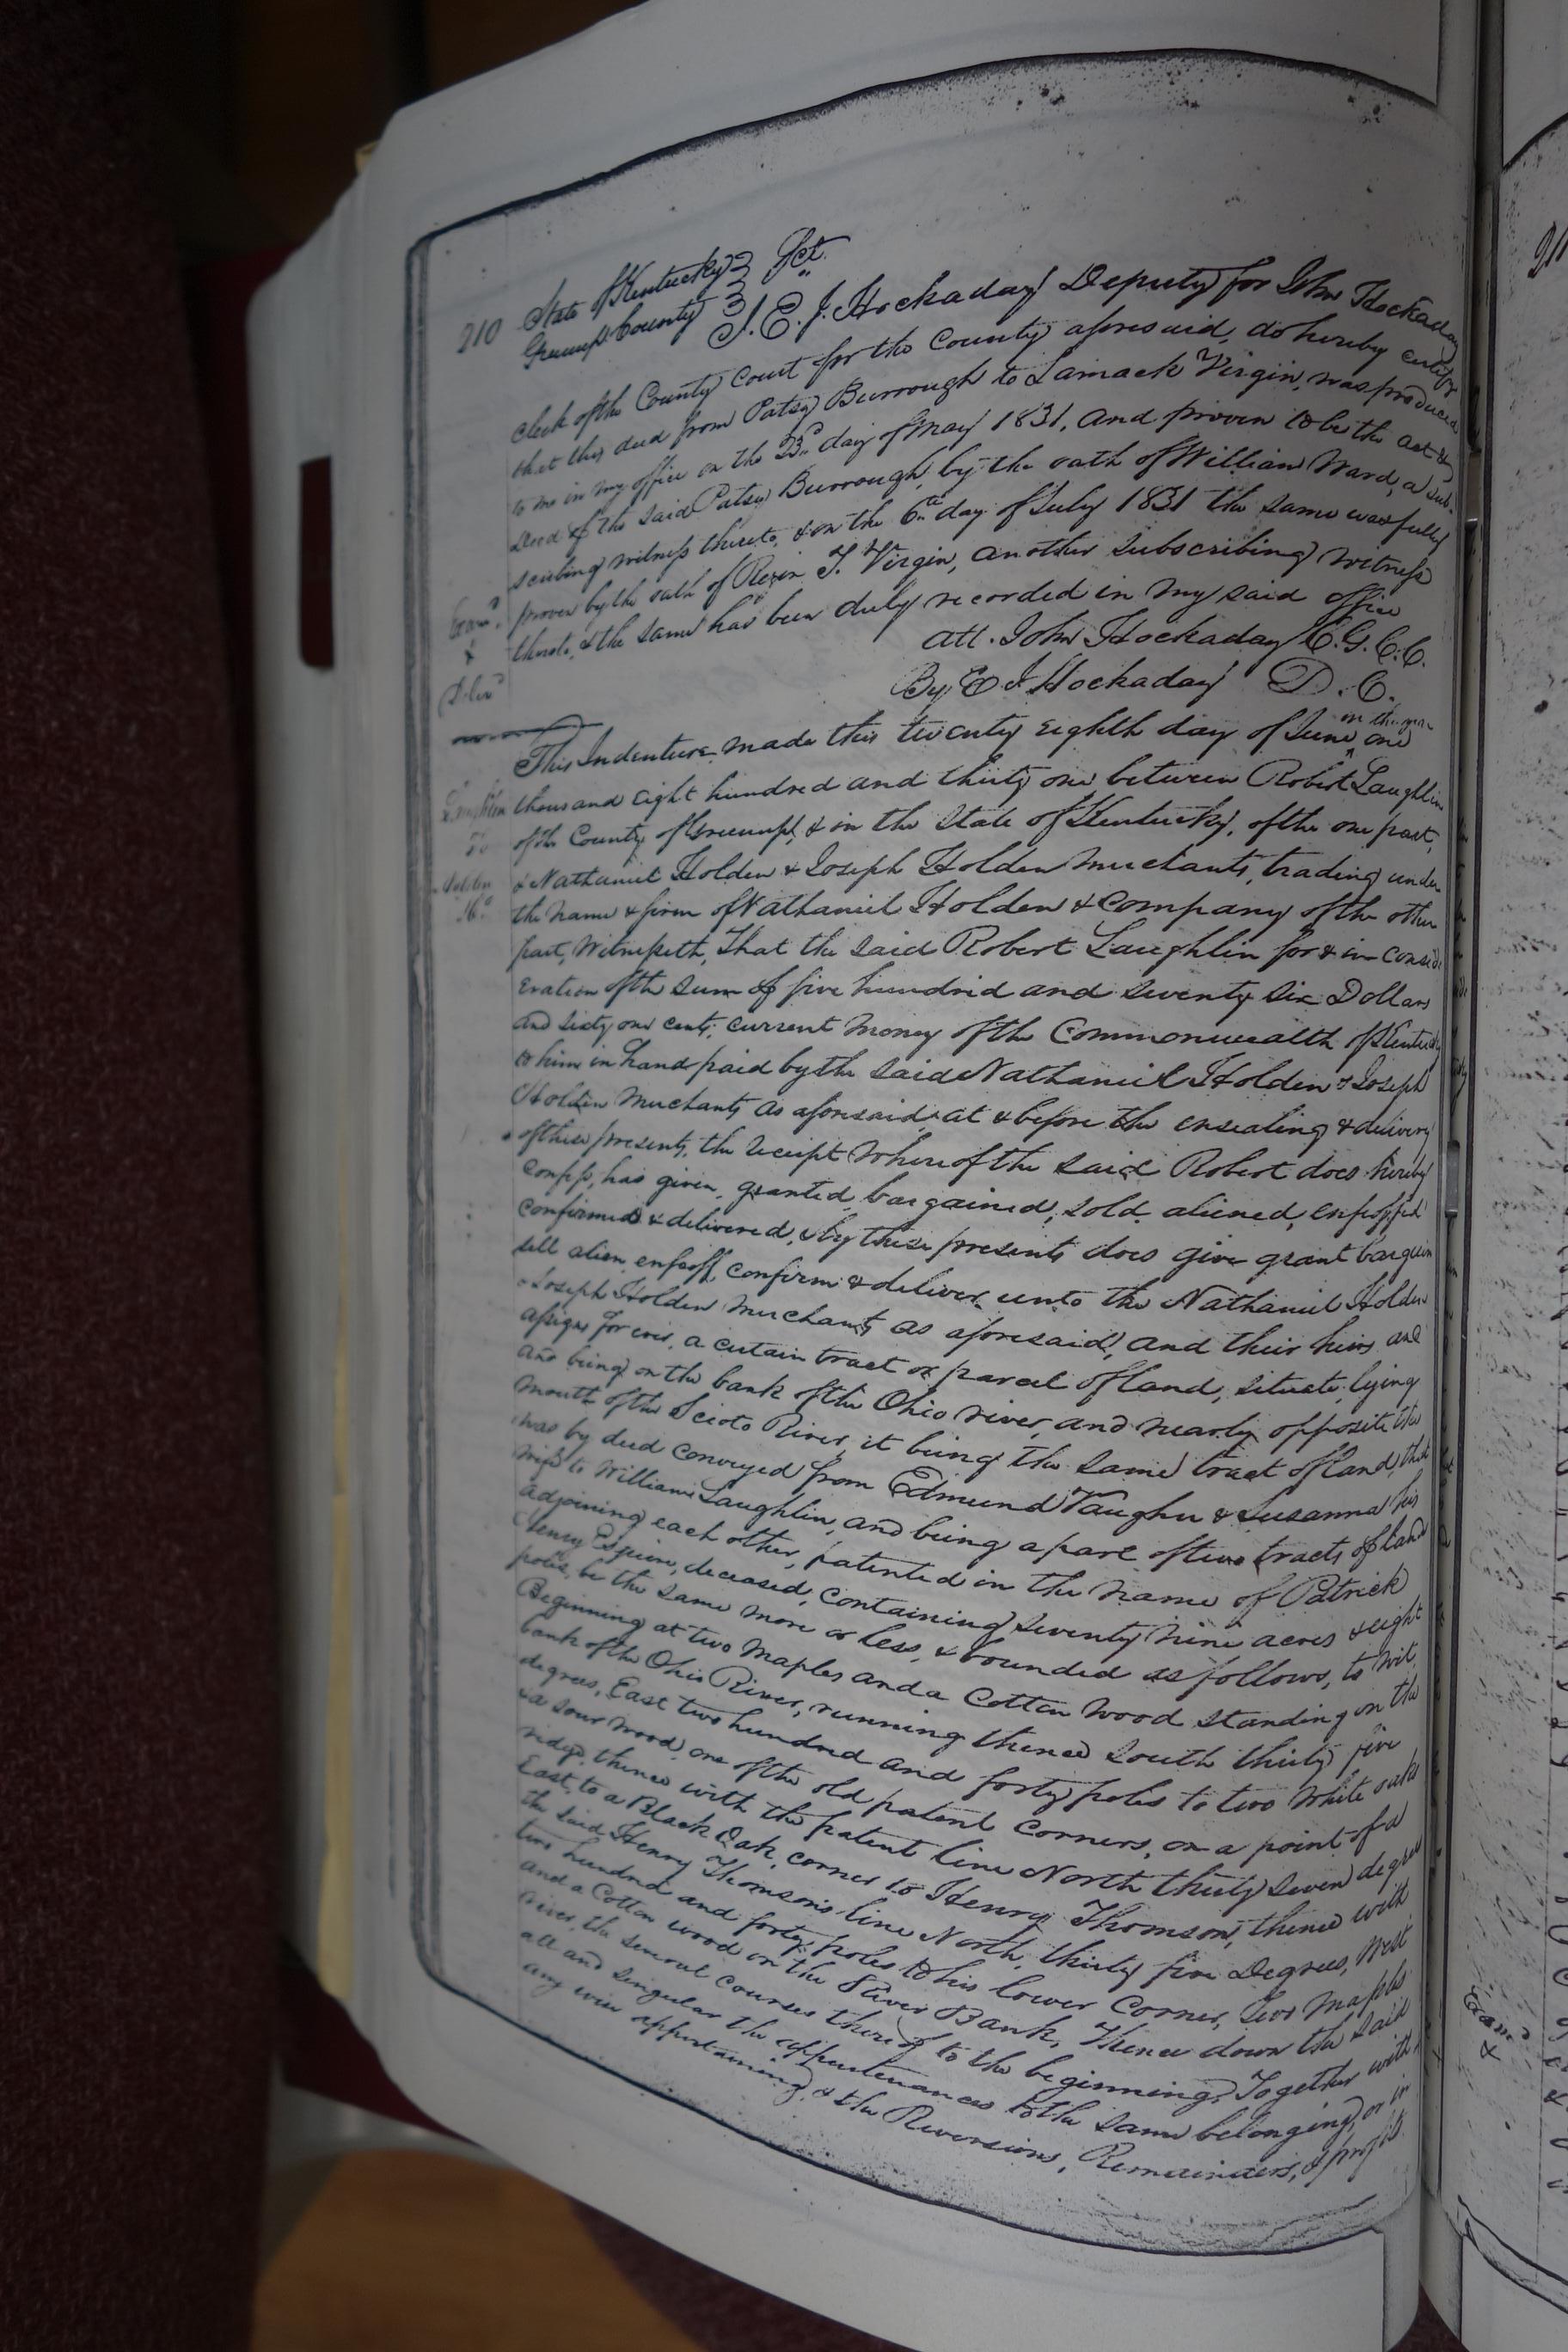 210
State of Kentucky } Sct.
Greenup County }
I. E. J. Hockaday Deputy for John Hockaday
clerk of the County Court for the County aforesaid, do hereby certify
that this deed from Patsy Burrough to Lamack Virgin, was produced
to me in my office on the 23d day of May 1831, and proven to be the act &
Deed of the said Patsy Burrough, by the oath of William Ward, a sub-
scribing witness thereto, & on the 6th day of July 1831 the same was fully
proven by the oath of Rezin T. Virgin, another subscribing witness
thereto, & the same has been duly recorded in my said office
Exam.d
&
att. John Hockaday C.G.C.C.
By E J Hockaday D.C.
This Indenture made this twenty eighth day of June in the year one
Laughlin
To
Holden
thousand eight hundred and thirty one between Robert Laughlin
of the County of Greenup, & in the State of Kentucky, of the one part,
& Nathaniel Holden & Joseph Holden Merchants, trading under
the name & firm of Nathaniel Holden & Company of the other
part, Witnesseth, That the said Robert Laughlin for & in consid
eration of the sum of five hundred and seventy six Dollars
and sixty one cents, current money of the Commonwealth of Kentucky
to him in hand paid by the said Nathaniel Holden & Joseph
Holden Merchants as aforesaid, at & before the ensealing & delivery
of these presents, the receipt whereof the said Robert does hereby
confess, has given, granted, bargained, sold, aliened, enfeoffed
confirmed & delivered, & by these presents does give grant bargain
sell alien, enfeoff, confirm & deliver unto the Nathaniel Holden
& Joseph Holden Merchants as aforesaid, and their heirs and
assigns for ever, a certain tract or parcel of land, situate, lying
and being on the bank of the Ohio river, and nearly opposite the
mouth of the Scioto River, it being the same tract of land, that
was by deed conveyed from Edmund Vaughn & Susanna his
wife to William Laughlin, and being a part of two tracts of land
adjoining each other, patented in the name of Patrick
Henry Esquire, deceased, containing seventy nine acres & eight
poles, be the same more or less, & bounded as follows, to wit,
Beginning at two Maples and a Cotton wood standing on the
bank of the Ohio River, running thence South thirty five
degrees, East two hundred and forty poles to two White oaks
& a sour wood, one of the old patent corners, on a point of a
ridge, thence with the patent line North thirty seven degrees
East, to a Black Oak, corner to Henry Thomson, thence with
the said Henry Thomson's line North, thirty five Degrees, West
two hundred and forty poles to his lower corner, two Maples
and a Cotton wood on the River Bank, Thence down the said
River, the several courses thereof to the beginning, Together with,
all and singular the appurtenances to the same belonging, or in
any wise appertaining, & the Reversions, Remainders, & profits
Exam.d
&